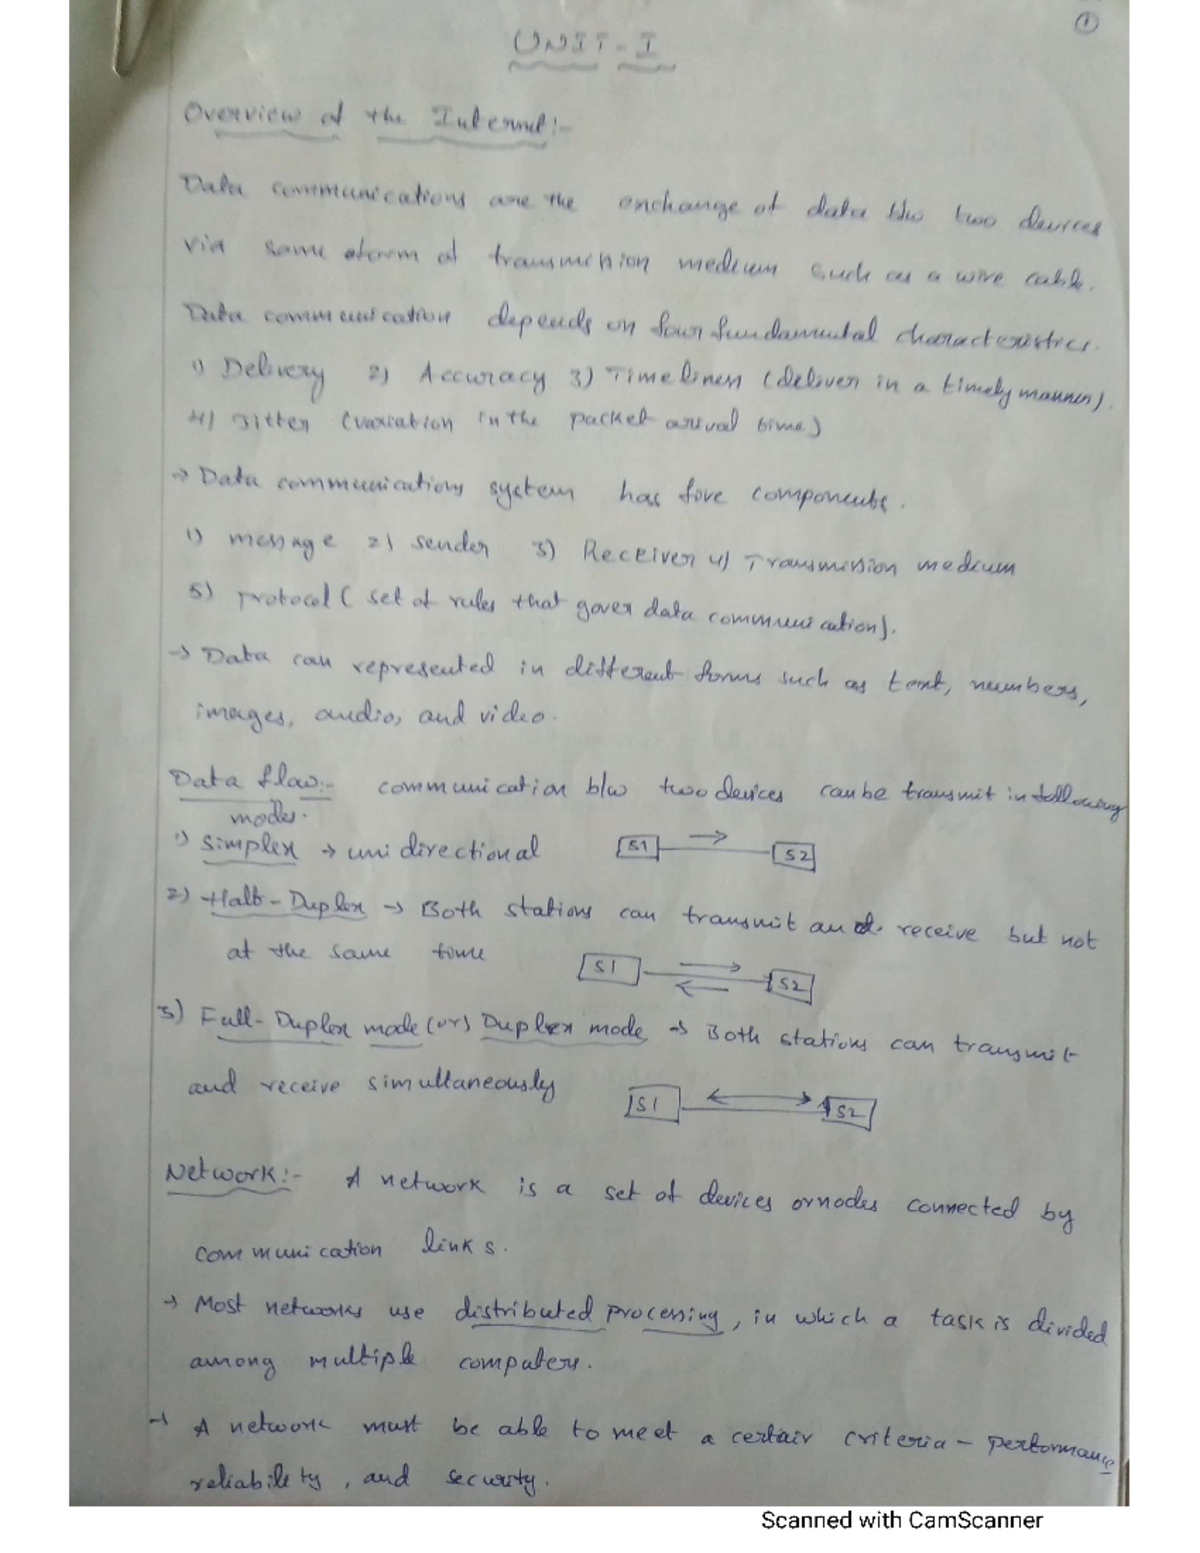 ①
UNIT-I
Overview of the Internet:-
Data communications are the exchange of data b/w two devices
via some form of transmission medium such as a wire cable.
Data communication depends on four fundamental characteristics.
1) Delivery 2) Accuracy 3) Timeliness (deliver in a timely manner).
4) Jitter (variation in the packet arrival time)
→ Data communications system has five components.
1) message 2) sender 3) Receiver 4) Transmission medium
5) protocol ( set of rules that gover data communication).
→ Data can represented in different forms such as text, numbers,
images, audio, and video.
Data flow:- communication b/w two devices can be transmit in following
modes.
1) Simplex → uni directional S1 S2
2) Half-Duplex → Both stations can transmit and receive but not
at the same time S1 S2
3) Full-Duplex mode (or) Duplex mode → Both stations can transmit
and receive simultaneously S1 S2
Network:- A network is a set of devices or nodes connected by
communication links.
→ Most networks use distributed processing, in which a task is divided
among multiple computers.
→ A network must be able to meet a certain criteria - performance
reliability, and security.
Scanned with CamScanner